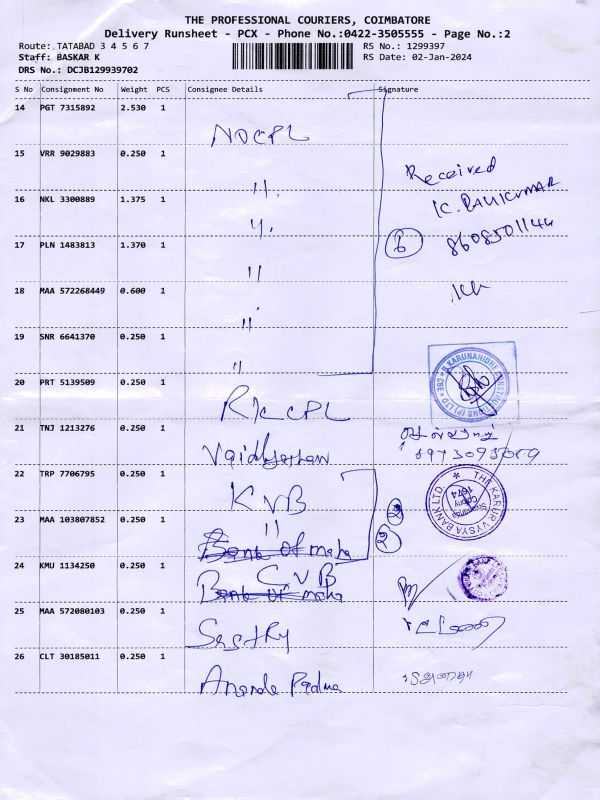 THE PROFESSIONAL COURIERS, COIMBATORE
Delivery Runsheet - PCX - Phone No.:0422-3505555 - Page No.:2
Route: TATABAD 3 4 5 6 7
RS No.: 1299397
Staff: BASKAR K
RS Date: 02-Jan-2024
DRS No.: DCJB129939702
S No Consignment No Weight PCS Consignee Details Signature
14 PGT 7315892 2.530 1
NDCPL
15 VRR 9029883 0.250 1
"
Received
16 NKL 3300889 1.375 1
"
K. RAVIKUMAR
17 PLN 1483813 1.370 1
"
6
8608501144
18 MAA 572268449 0.600 1
"
19 SNR 6641370 0.250 1
"
20 PRT 5139509 0.250 1
RKCPL
21 TNJ 1213276 0.250 1
22 TRP 7706795 0.250 1
KVB
THE KARUR VYSYA BANK LTD.
1674
23 MAA 103807852 0.250 1
"
Bank of maha
2
24 KMU 1134250 0.250 1
CVB
Bank of maha
25 MAA 572080103 0.250 1
26 CLT 30185011 0.250 1
Padma